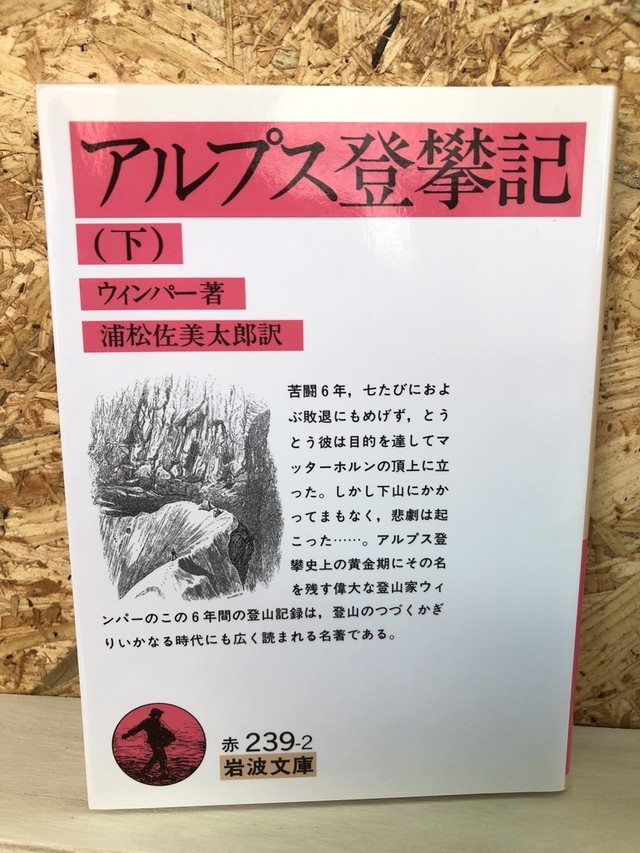 アルプス登攀記
（下）
ウィンパー著
浦松佐美太郎訳
苦闘6年，七たびにおよ
ぶ敗退にもめげず，とう
とう彼は目的を達してマ
ッターホルンの頂上に立
った。しかし下山にかか
ってまもなく，悲劇は起
こった……。アルプス登
攀史上の黄金期にその名
を残す偉大な登山家ウィ
ンパーのこの6年間の登山記録は，登山のつづくかぎ
りいかなる時代にも広く読まれる名著である。
赤 239-2
岩波文庫